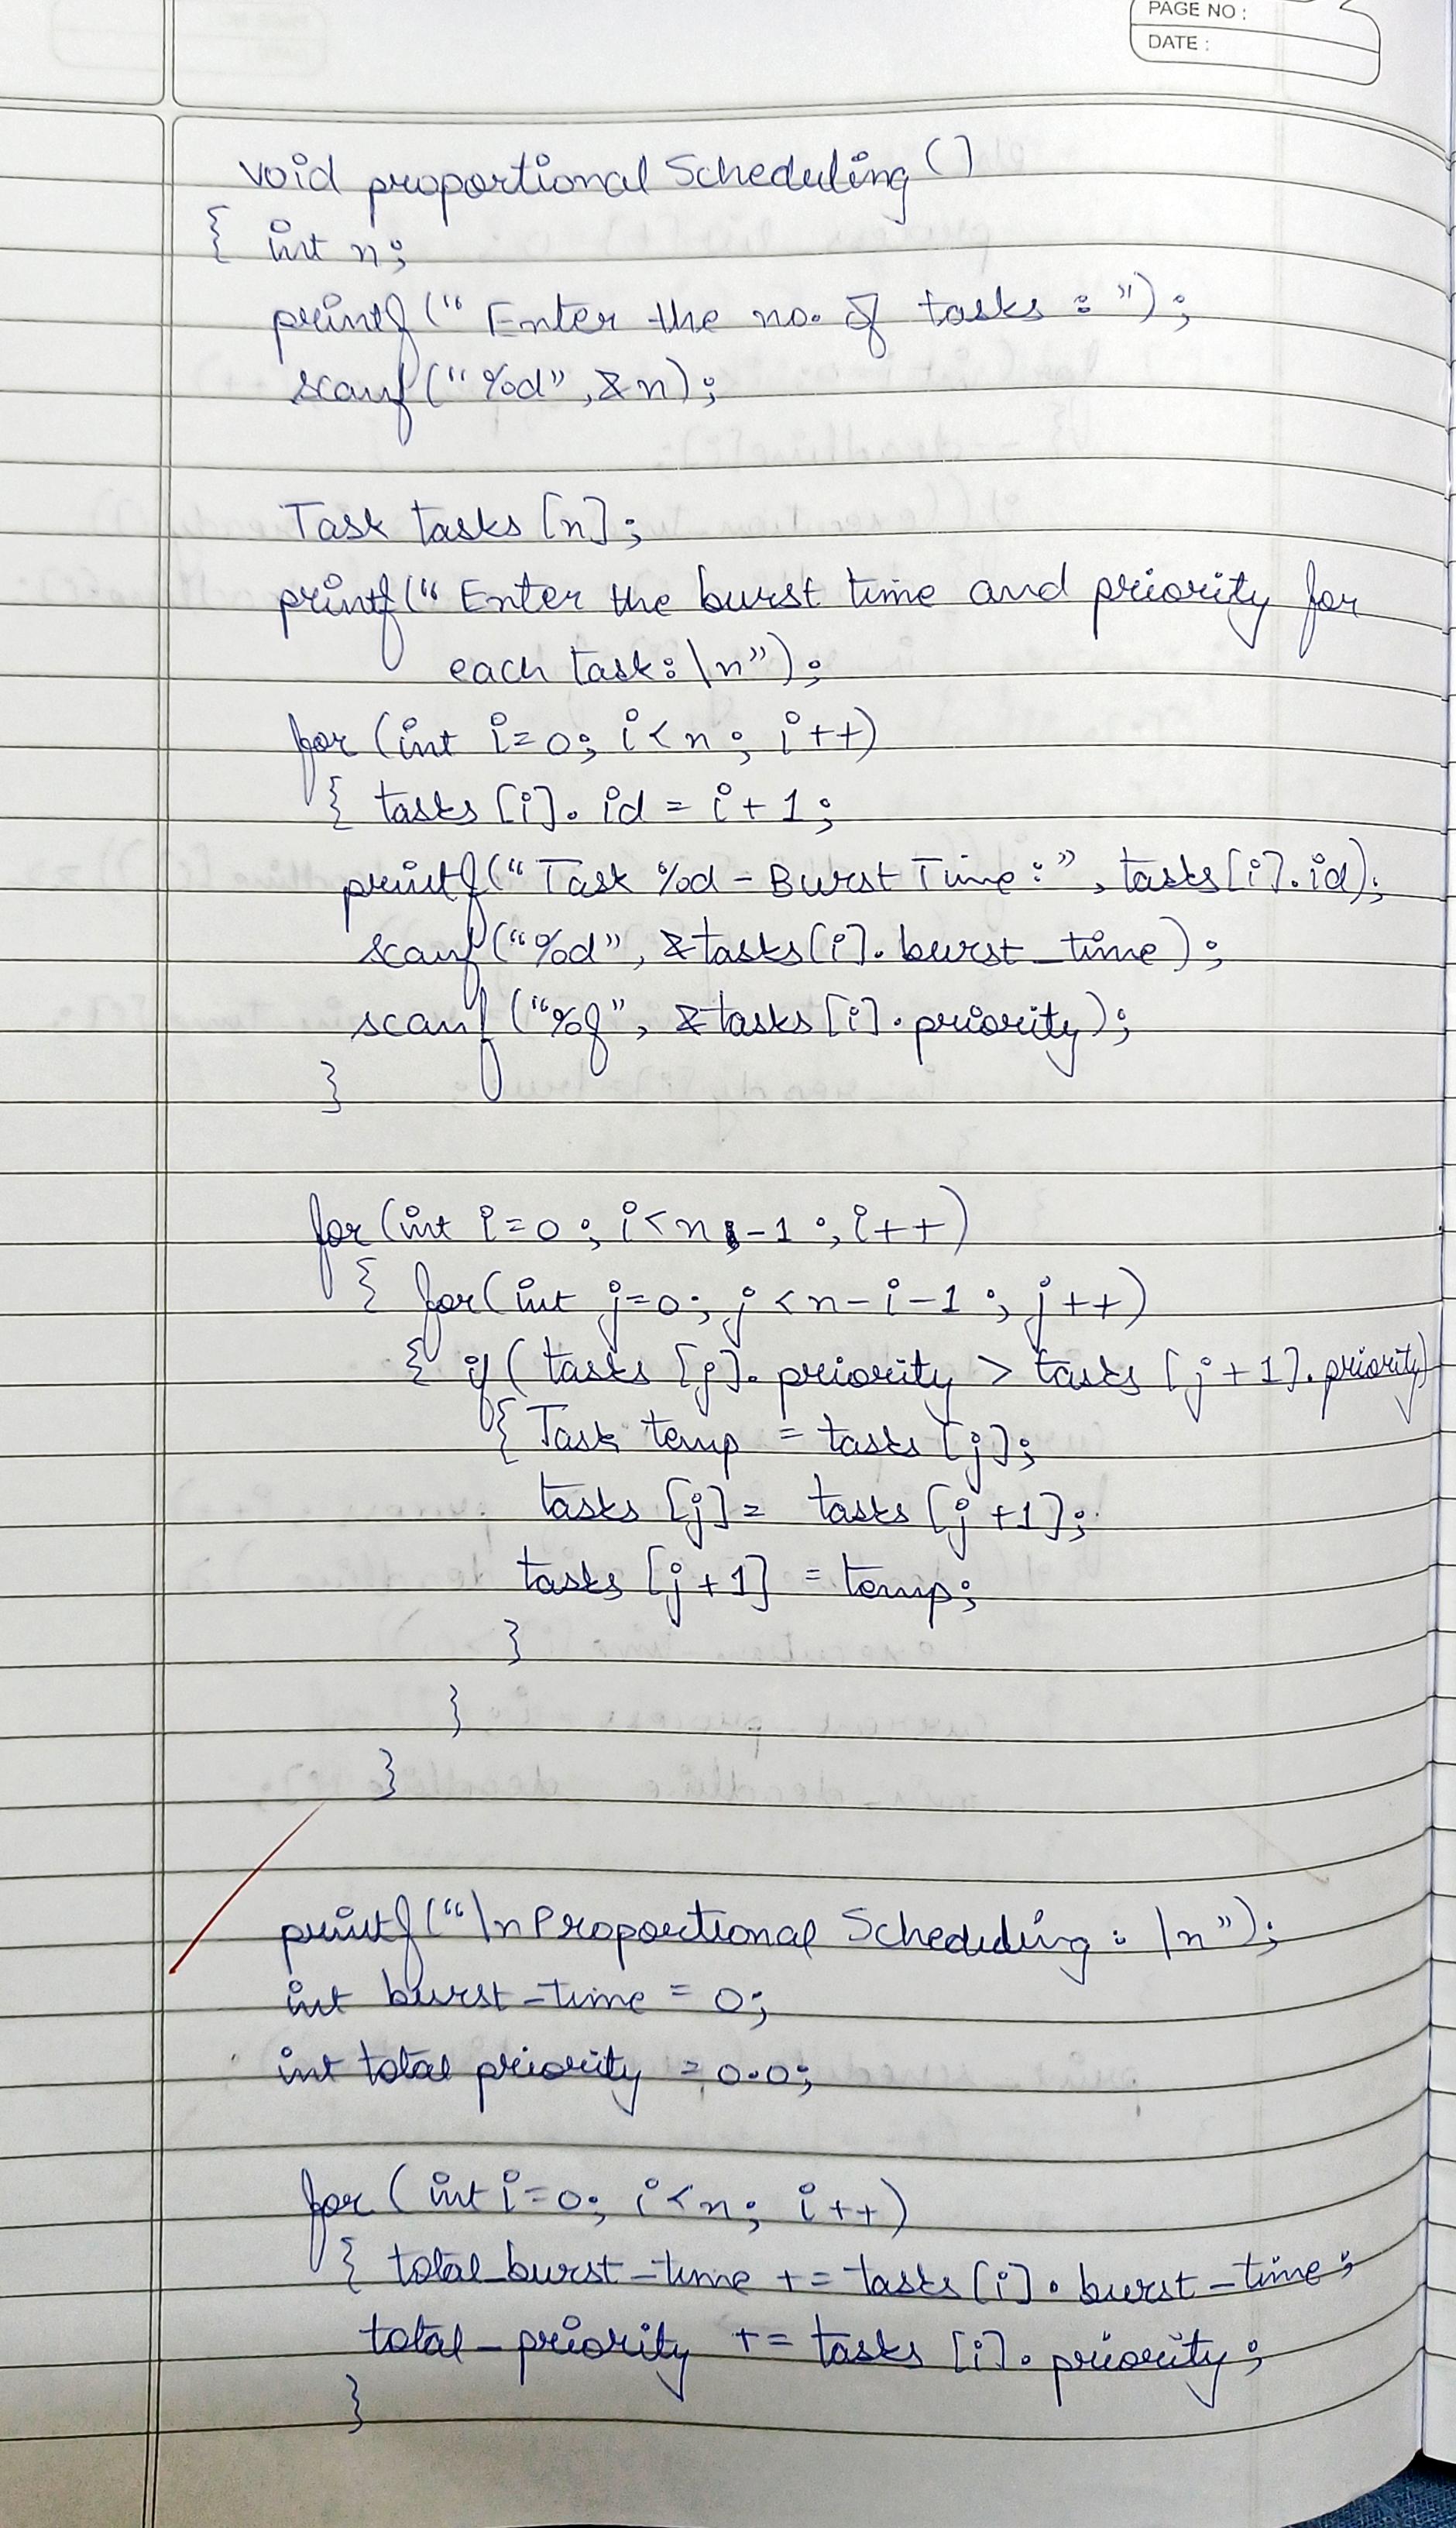 PAGE NO :
DATE :
void proportional Scheduling ()
{ int n;
printf (" Enter the no. of tasks : ");
scanf ("%d", &n);
Task tasks [n];
printf (" Enter the burst time and priority for
each task: \n");
for (int i=0; i<n; i++)
{ tasks [i]. id = i+1;
printf (" Task %d - Burst Time : ", tasks [i]. id);
scanf ("%d", &tasks [i]. burst_time);
scanf ("%f", &tasks [i]. priority);
}
for (int i=0; i<n-1; i++)
{ for (int j=0; j<n-i-1; j++)
{ if ( tasks [j]. priority > tasks [j+1]. priority)
{ Task temp = tasks [j];
tasks [j] = tasks [j+1];
tasks [j+1] = temp;
}
}
}
printf ("\n Proportional Scheduling : \n");
int burst-time = 0;
int total priority = 0.0;
for (int i=0; i<n; i++)
{ total_burst-time += tasks [i]. burst-time;
total-priority += tasks [i]. priority;
}